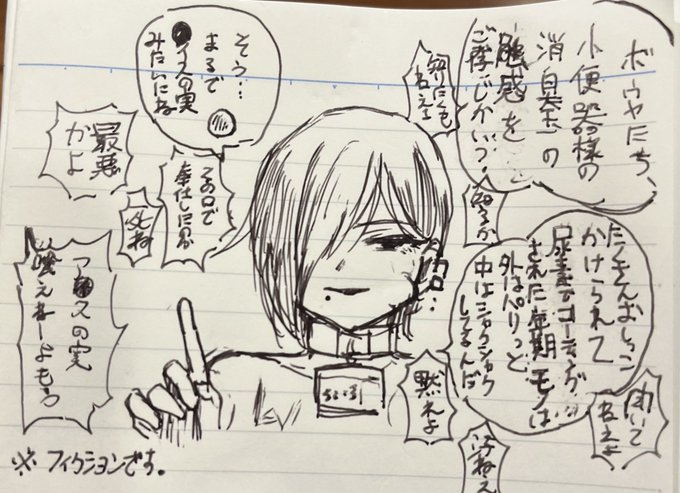 ボウヤたち、
小便器様の
消臭玉の
触感を
ご存じかい?
知りたくも
ねえよ
知るか
たくさんおしっこ
かけられて
尿素でコーティング
された延期モノは
外はパリっと
中はシャクシャク
してるんだ
聞いて
ねえよ
汚ねえ
黙れよ
カロ…
そう…
まるで
アイスの実
みたいにね
その口で
奉仕したのか
死ね
最悪
かよ
アイスの実
喰えねーよもう
※フィクションです。